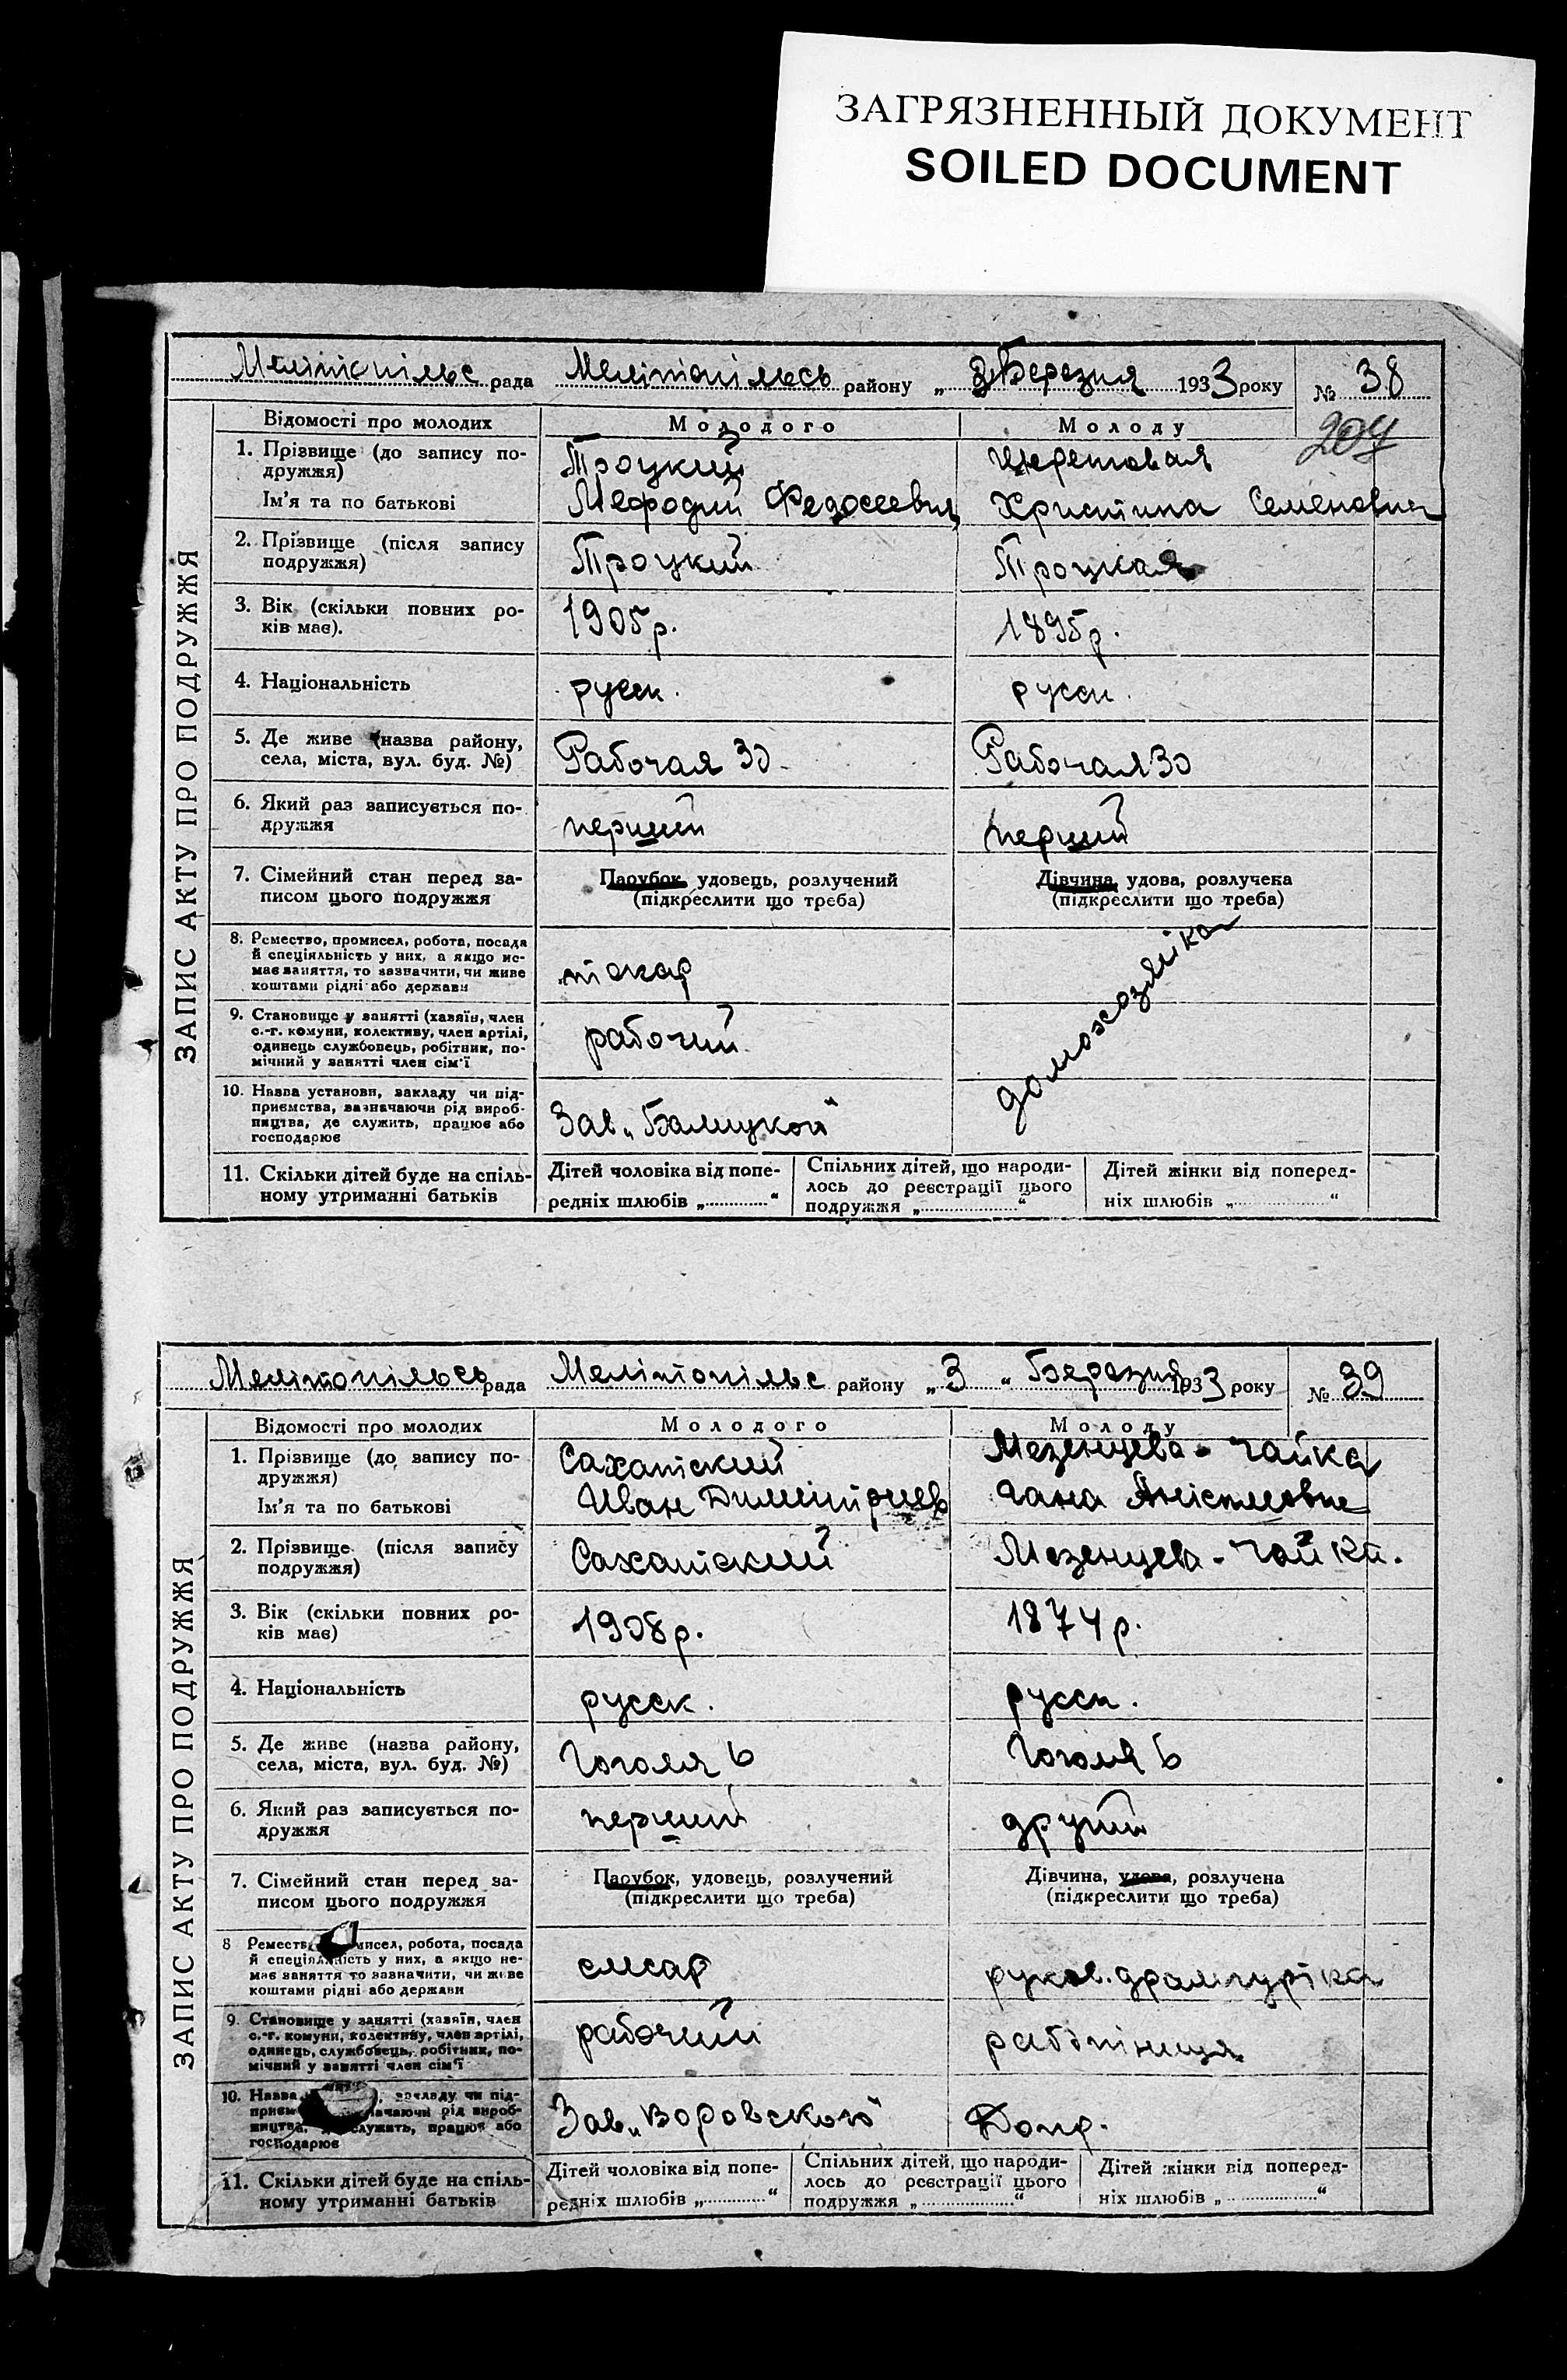 ЗАГРЯЗНЕННЫЙ ДОКУМЕНТ
SOILED DOCUMENT
Мелітопільс рада Мелітопільсь району „ 3 Березня 1933 року № 38
204
ЗАПИС АКТУ ПРО ПОДРУЖЖЯ
Відомості про молодих Молодого Молоду
1. Прізвище (до запису по-
дружжя) Троцкий
Ім'я та по батькові Мефодий Федосеевич Христина Семеновна
2. Прізвище (після запису
подружжя) Троцкий Троцкая
3. Вік (скільки повних ро-
ків має). 1905 р. 1895 р.
4. Національність русск. русск.
5. Де живе (назва району,
села, міста, вул. буд. №) Рабочая 30 Рабочая 30
6. Який раз записується по-
дружжя перший перший
7. Сімейний стан перед за-
писом цього подружжя Парубок, удовець, розлучений Дівчина, удова, розлучена
(підкреслити що треба) (підкреслити що треба)
8. Ремество, промисел, робота, посада
й спеціяльність у них, а якщо не-
має заняття, то зазначити, чи живе
коштами рідні або держави токар домохозяйка
9. Становище у занятті (хазяїн, член
с.-г. комуни, колективу, член артілі,
одинець службовець, робітник, по-
мічний у занятті член сім'ї рабочий
10. Назва установи, закладу чи під-
приємства, зазначаючи рід вироб-
ництва, де служить, працює або
господарює Зав „
11. Скільки дітей буде на спіль-
ному утриманні батьків Дітей чоловіка від попе-
редніх шлюбів „ “ Спільних дітей, що народи-
лось до реєстрації цього
подружжя „ “ Дітей жінки від поперед-
ніх шлюбів „ “
Мелітопільсь рада Мелітопільс району „ 3 „ Березня 1933 року № 39
ЗАПИС АКТУ ПРО ПОДРУЖЖЯ
Відомості про молодих Молодого Молоду
1. Прізвище (до запису по-
дружжя) Сахатский Мезенцева - Чайка
Ім'я та по батькові Иван
2. Прізвище (після запису
подружжя) Сахатский Мезенцева - Чайка
3. Вік (скільки повних ро-
ків має) 1908 р. 1874 р.
4. Національність русск. русск.
5. Де живе (назва району,
села, міста, вул. буд. №) Гоголя 6 Гоголя 6
6. Який раз записується по-
дружжя перший другий
7. Сімейний стан перед за-
писом цього подружжя Парубок, удовець, розлучений Дівчина, удова, розлучена
(підкреслити що треба) (підкреслити що треба)
8 промисел, робота, посада
й спеціяльність у них, а якщо не-
має заняття то зазначити, чи живе
коштами рідні або держави слесар руков.
9. Становище у занятті (хазяїн, член
с.-г. комуни, колективу, член артілі,
одинець, службовець, робітник, по-
мічний у занятті член сім'ї рабочий
10. Назва закладу чи під-
рід вироб-
ництва, служить, працює або
господарює Зав „Воровского“
11. Скільки дітей буде на спіль-
ному утриманні батьків Дітей чоловіка від попе-
редніх шлюбів „ “ Спільних дітей, що народи-
лось до реєстрації цього
подружжя „ “ Дітей жінки від поперед-
ніх шлюбів „ “